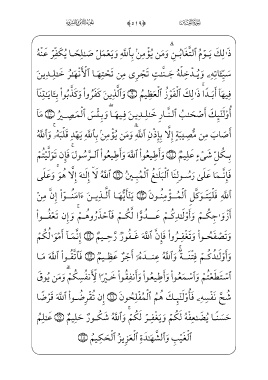 ذَٰلِكَ يَوْمُ ٱلتَّغَابُنِ ۗ وَمَن يُؤْمِنۢ بِٱللَّهِ وَيَعْمَلْ صَـٰلِحًا يُكَفِّرْ عَنْهُ
سَيِّـَٔاتِهِۦ وَيُدْخِلْهُ جَنَّـٰتٍ تَجْرِى مِن تَحْتِهَا ٱلْأَنْهَـٰرُ خَـٰلِدِينَ
فِيهَآ أَبَدًا ۚ ذَٰلِكَ ٱلْفَوْزُ ٱلْعَظِيمُ ۝ وَٱلَّذِينَ كَفَرُوا۟ وَكَذَّبُوا۟ بِـَٔايَـٰتِنَآ
أُو۟لَـٰٓئِكَ أَصْحَـٰبُ ٱلنَّارِ خَـٰلِدِينَ فِيهَا ۖ وَبِئْسَ ٱلْمَصِيرُ ۝ مَآ
أَصَابَ مِن مُّصِيبَةٍ إِلَّا بِإِذْنِ ٱللَّهِ ۗ وَمَن يُؤْمِنۢ بِٱللَّهِ يَهْدِ قَلْبَهُۥ ۚ وَٱللَّهُ
بِكُلِّ شَىْءٍ عَلِيمٌ ۝ وَأَطِيعُوا۟ ٱللَّهَ وَأَطِيعُوا۟ ٱلرَّسُولَ ۚ فَإِن تَوَلَّيْتُمْ
فَإِنَّمَا عَلَىٰ رَسُولِنَا ٱلْبَلَـٰغُ ٱلْمُبِينُ ۝ ٱللَّهُ لَآ إِلَـٰهَ إِلَّا هُوَ ۚ وَعَلَى
ٱللَّهِ فَلْيَتَوَكَّلِ ٱلْمُؤْمِنُونَ ۝ يَـٰٓأَيُّهَا ٱلَّذِينَ ءَامَنُوٓا۟ إِنَّ مِنْ
أَزْوَٰجِكُمْ وَأَوْلَـٰدِكُمْ عَدُوًّا لَّكُمْ فَٱحْذَرُوهُمْ ۚ وَإِن تَعْفُوا۟
وَتَصْفَحُوا۟ وَتَغْفِرُوا۟ فَإِنَّ ٱللَّهَ غَفُورٌ رَّحِيمٌ ۝ إِنَّمَآ أَمْوَٰلُكُمْ
وَأَوْلَـٰدُكُمْ فِتْنَةٌ ۚ وَٱللَّهُ عِندَهُۥٓ أَجْرٌ عَظِيمٌ ۝ فَٱتَّقُوا۟ ٱللَّهَ مَا
ٱسْتَطَعْتُمْ وَٱسْمَعُوا۟ وَأَطِيعُوا۟ وَأَنفِقُوا۟ خَيْرًا لِّأَنفُسِكُمْ ۗ وَمَن يُوقَ
شُحَّ نَفْسِهِۦ فَأُو۟لَـٰٓئِكَ هُمُ ٱلْمُفْلِحُونَ ۝ إِن تُقْرِضُوا۟ ٱللَّهَ قَرْضًا
حَسَنًا يُضَـٰعِفْهُ لَكُمْ وَيَغْفِرْ لَكُمْ ۚ وَٱللَّهُ شَكُورٌ حَلِيمٌ ۝ عَـٰلِمُ
ٱلْغَيْبِ وَٱلشَّهَـٰدَةِ ٱلْعَزِيزُ ٱلْحَكِيمُ ۝